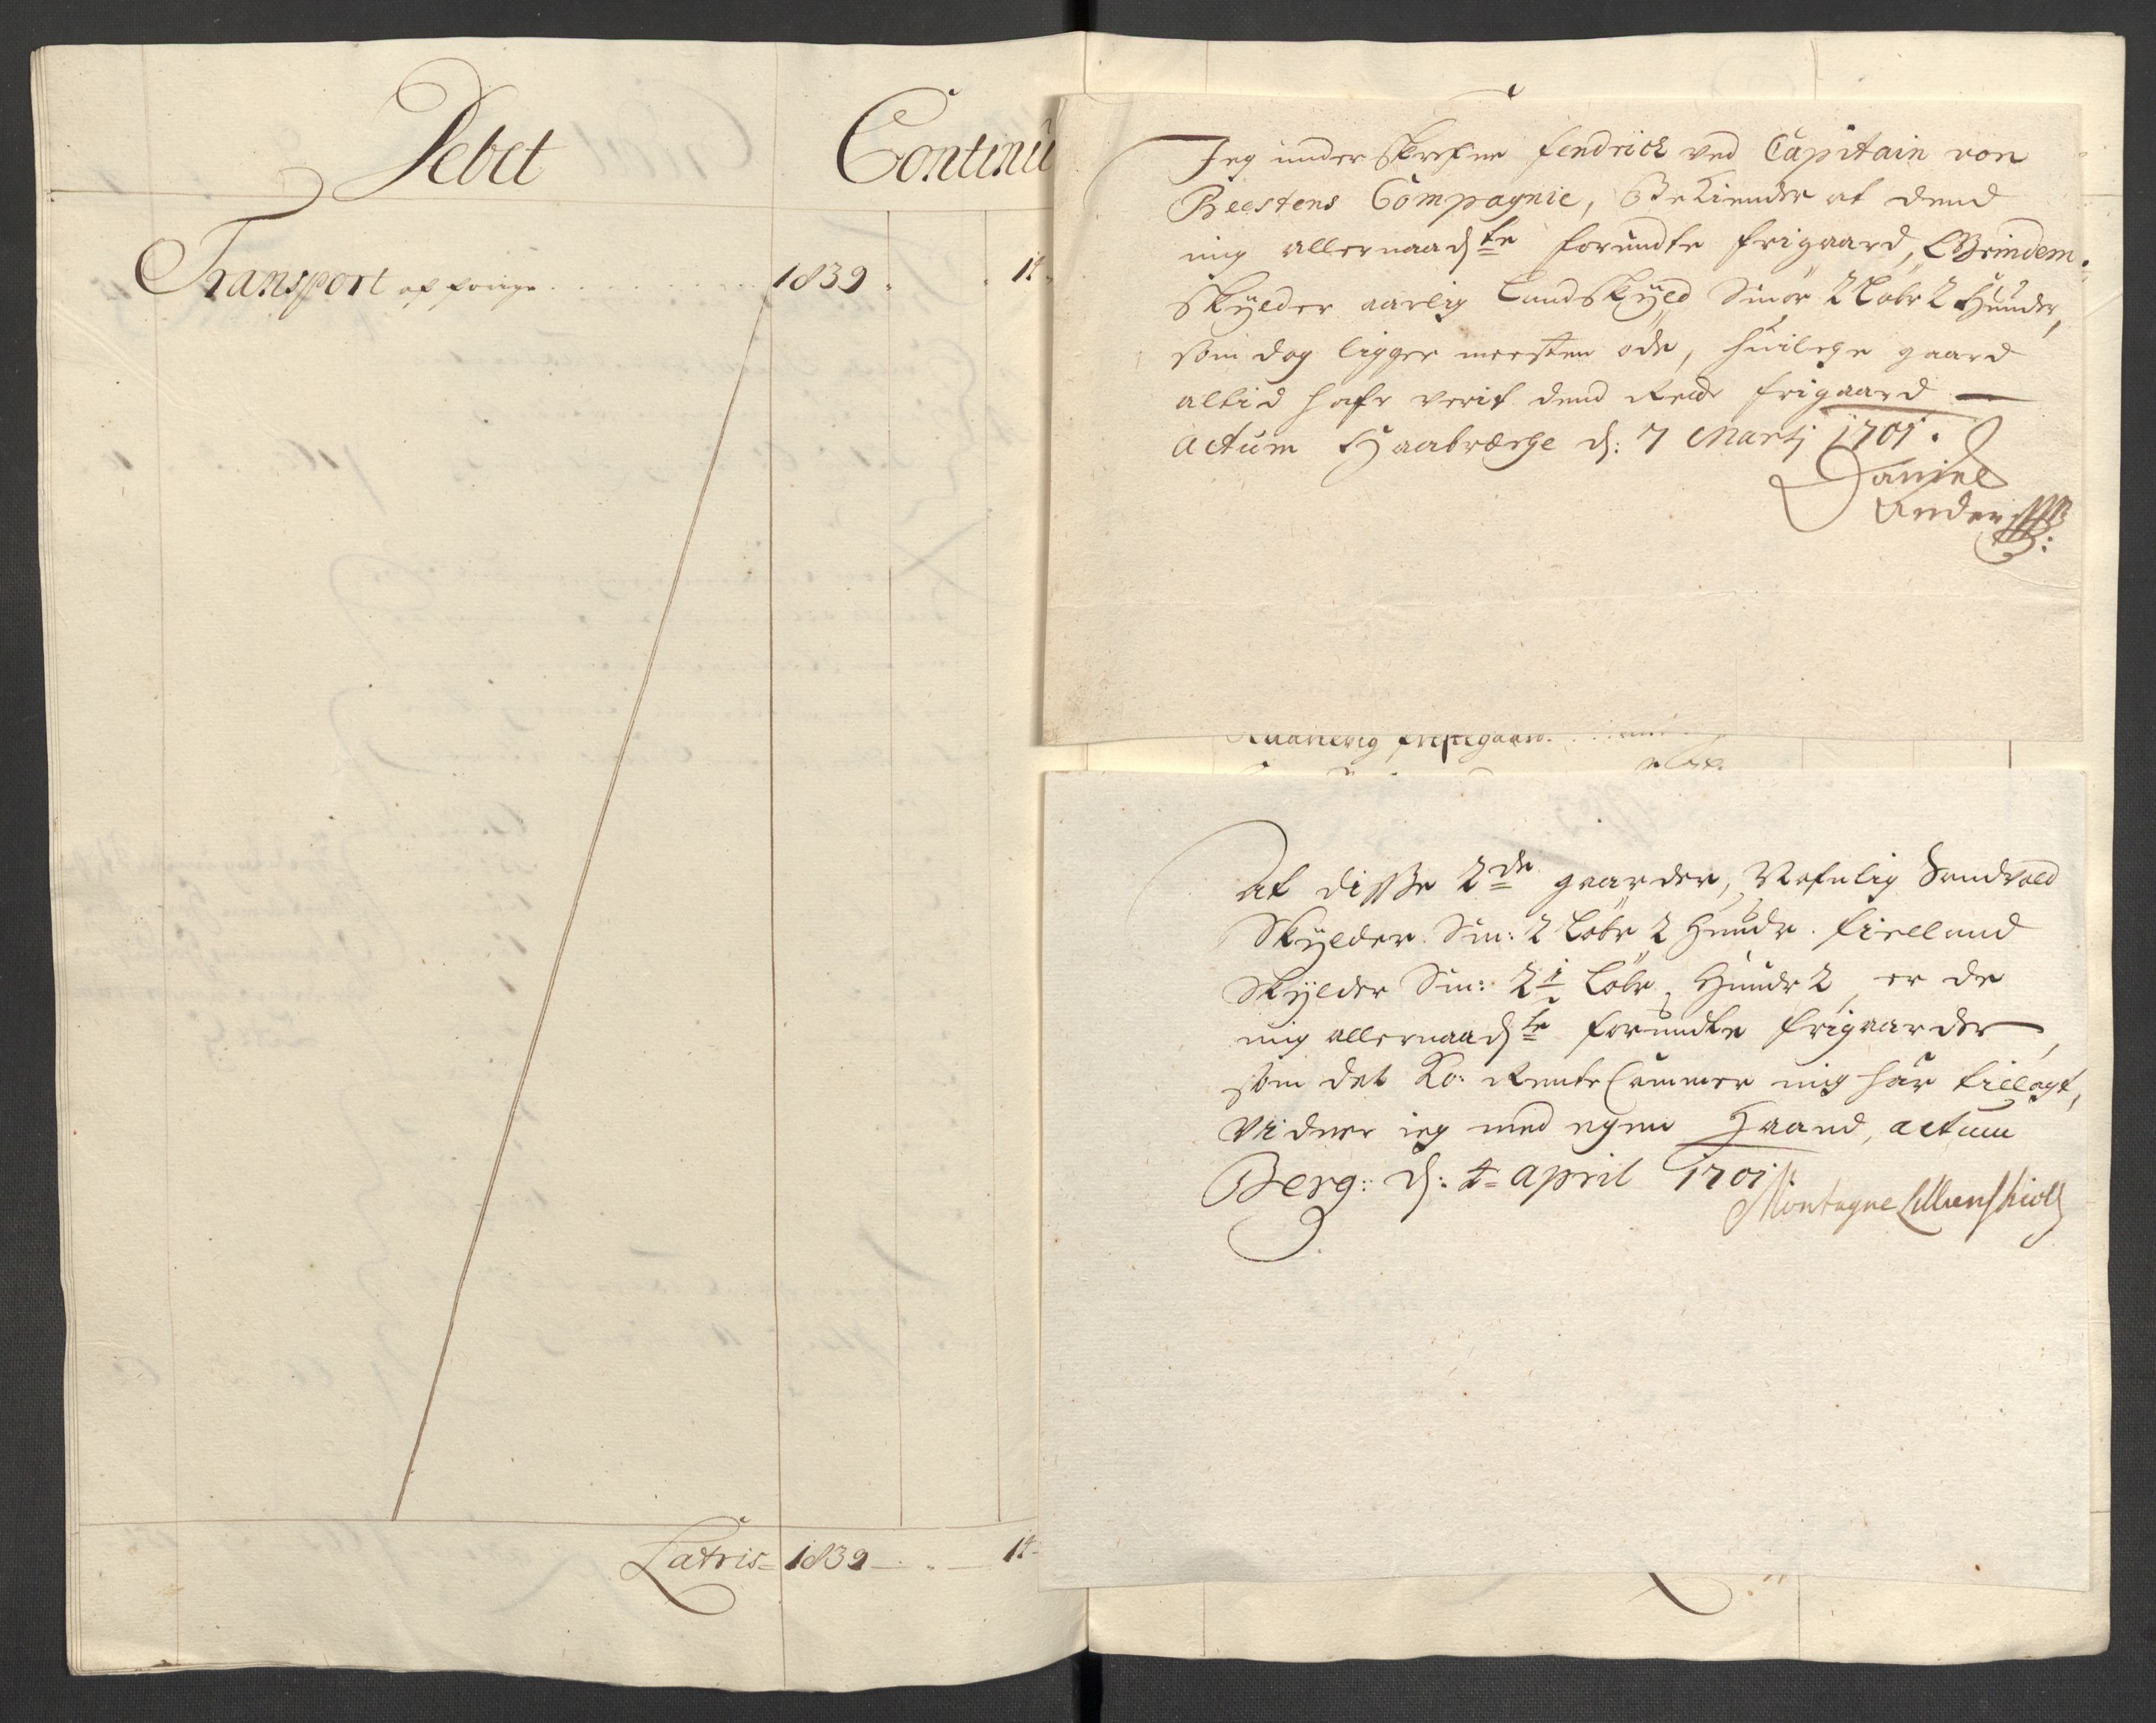 Debet Continu
Transport af forige 1839 14
Latris 1839 14
Jeg underskrefne fendrich ved Capitain von
Beestens Compagnie, Bekiender at dend
mig allernaadste forundte frigaard, Grindem
Skylder aarlig Landskyld Smör 2 Löbe 2 Huuder,
som dog ligger meesten öde, huilche gaard
altid hafr verit dend Rette frigaard
Actum Haabræche d: 7 Martj 1701.
Daniel
Anders
Raanevig Prestegaard
At disse 2de gaarder, Nafnlig Sandvold
Skylder Sm: 2 Löbe 2 Huude. fielland
Skylder Sm: 2 1/2 Löbe, Huude 2, er de
mig allernaadste forundte frigaarder,
som det Ko: RenteCammer mig har tillagt,
Vidner ieg med egen Haand, actum
Berg: d: 4 april 1701
Montagne Lillienskiold